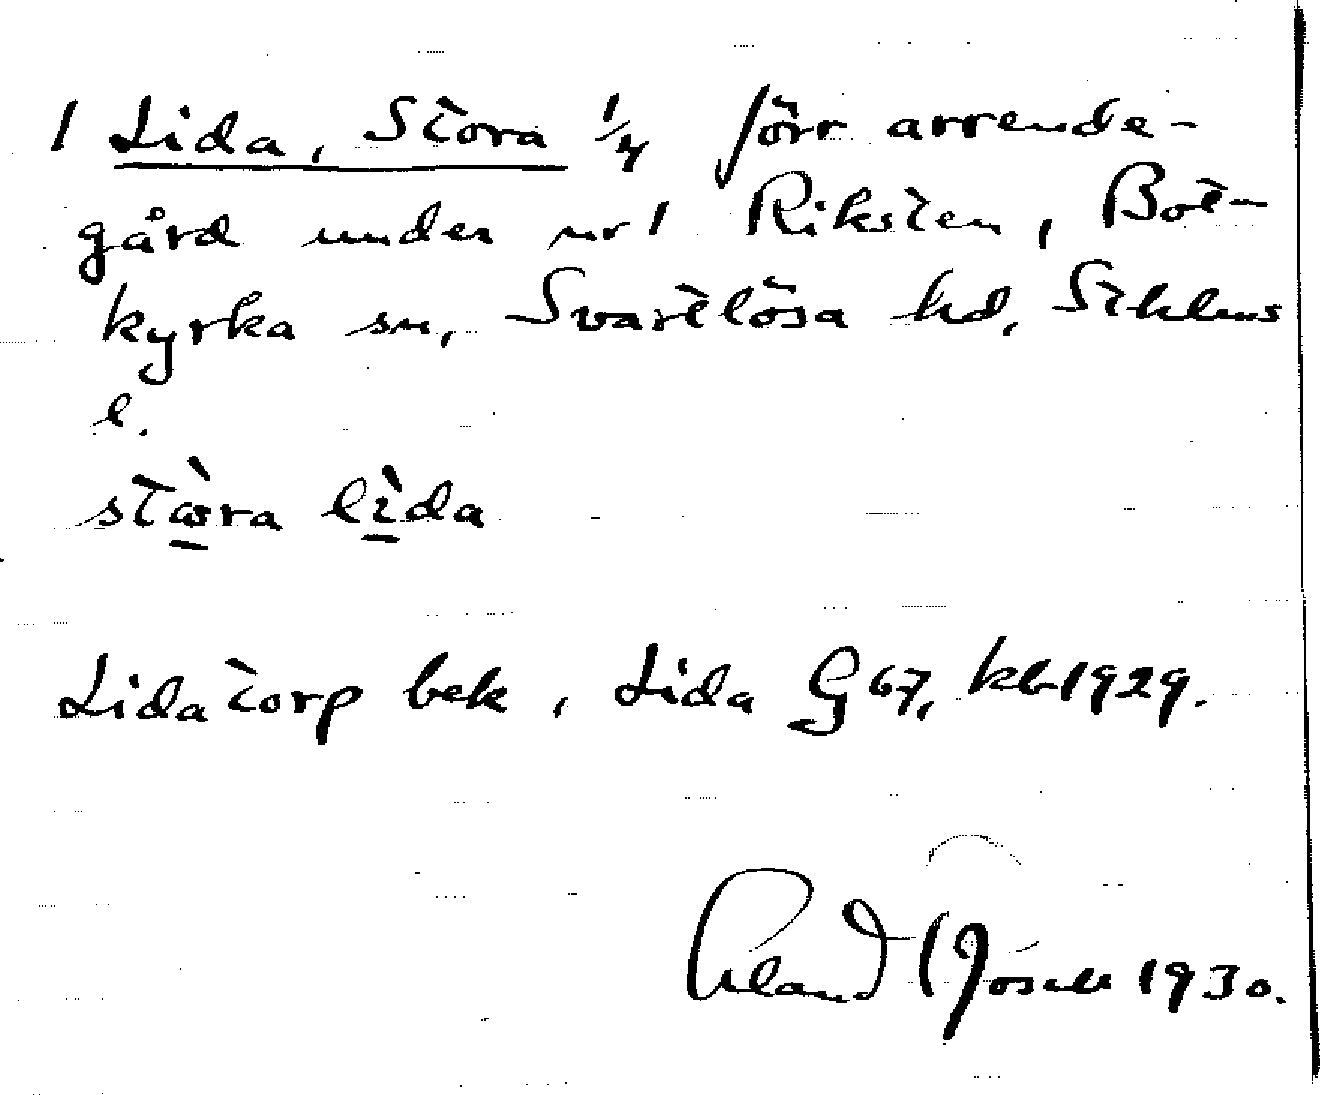 1 Lida, Stora 1/4 förr arrende-
gård under nr 1 Riksten, Bot-
kyrka sn, Svartlösa hd, Sthlms
l.
stò̱ra lì̱da
Lidatorp bek, Lida G 67, kb 1929.
1930.